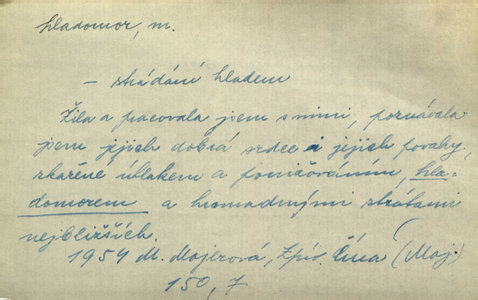 hladomor, m.
– strádání hladem
Žila a pracovala jsem s nimi, poznávala
jsem jejich dobrá srdce i jejich povahy,
zkažené útlakem a ponižováním, hla-
domorem a hromadnými ztrátami
nejbližších.
1954 M. Majerová, Zpív. Čína (Maj)
150, 7